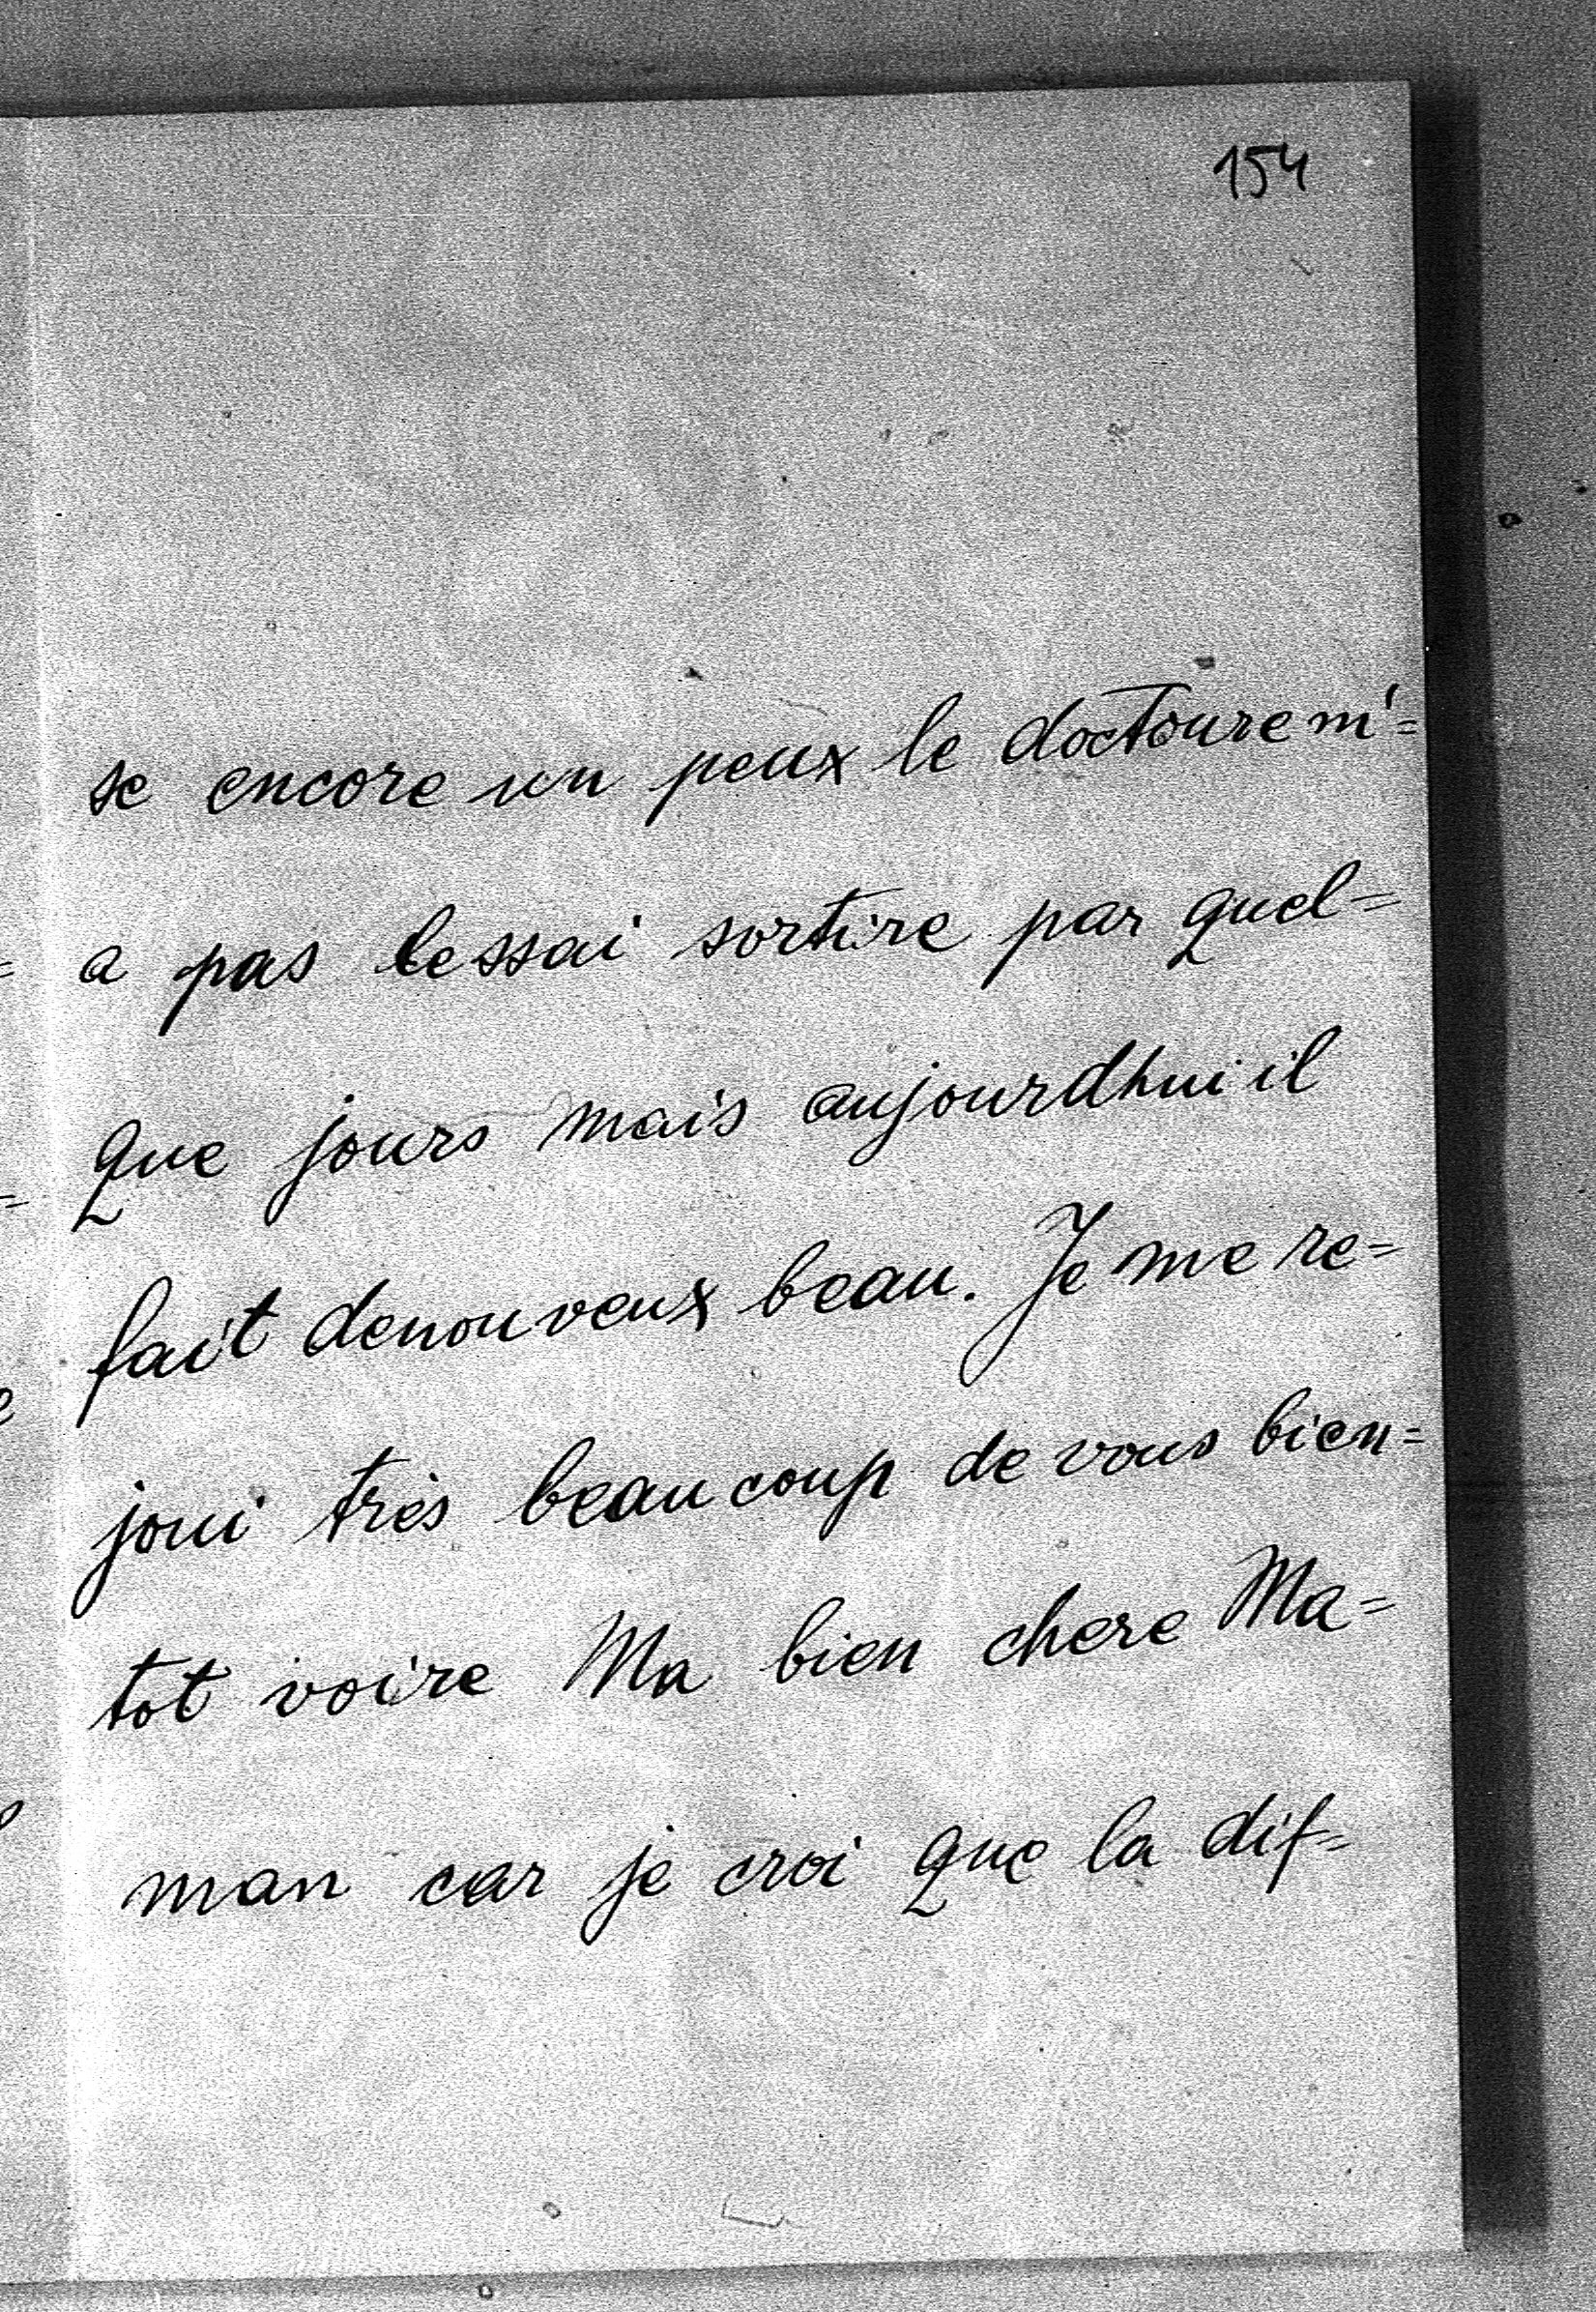 154
se encore un peux le doctoure m'=
a pas lessai sortire par quel=
que jours mais aujourdhui il
fait denouveux beau. Je me re=
joui très beaucoup de vous bien=
tot voire Ma bien chere Ma=
man car je croi que la dif=